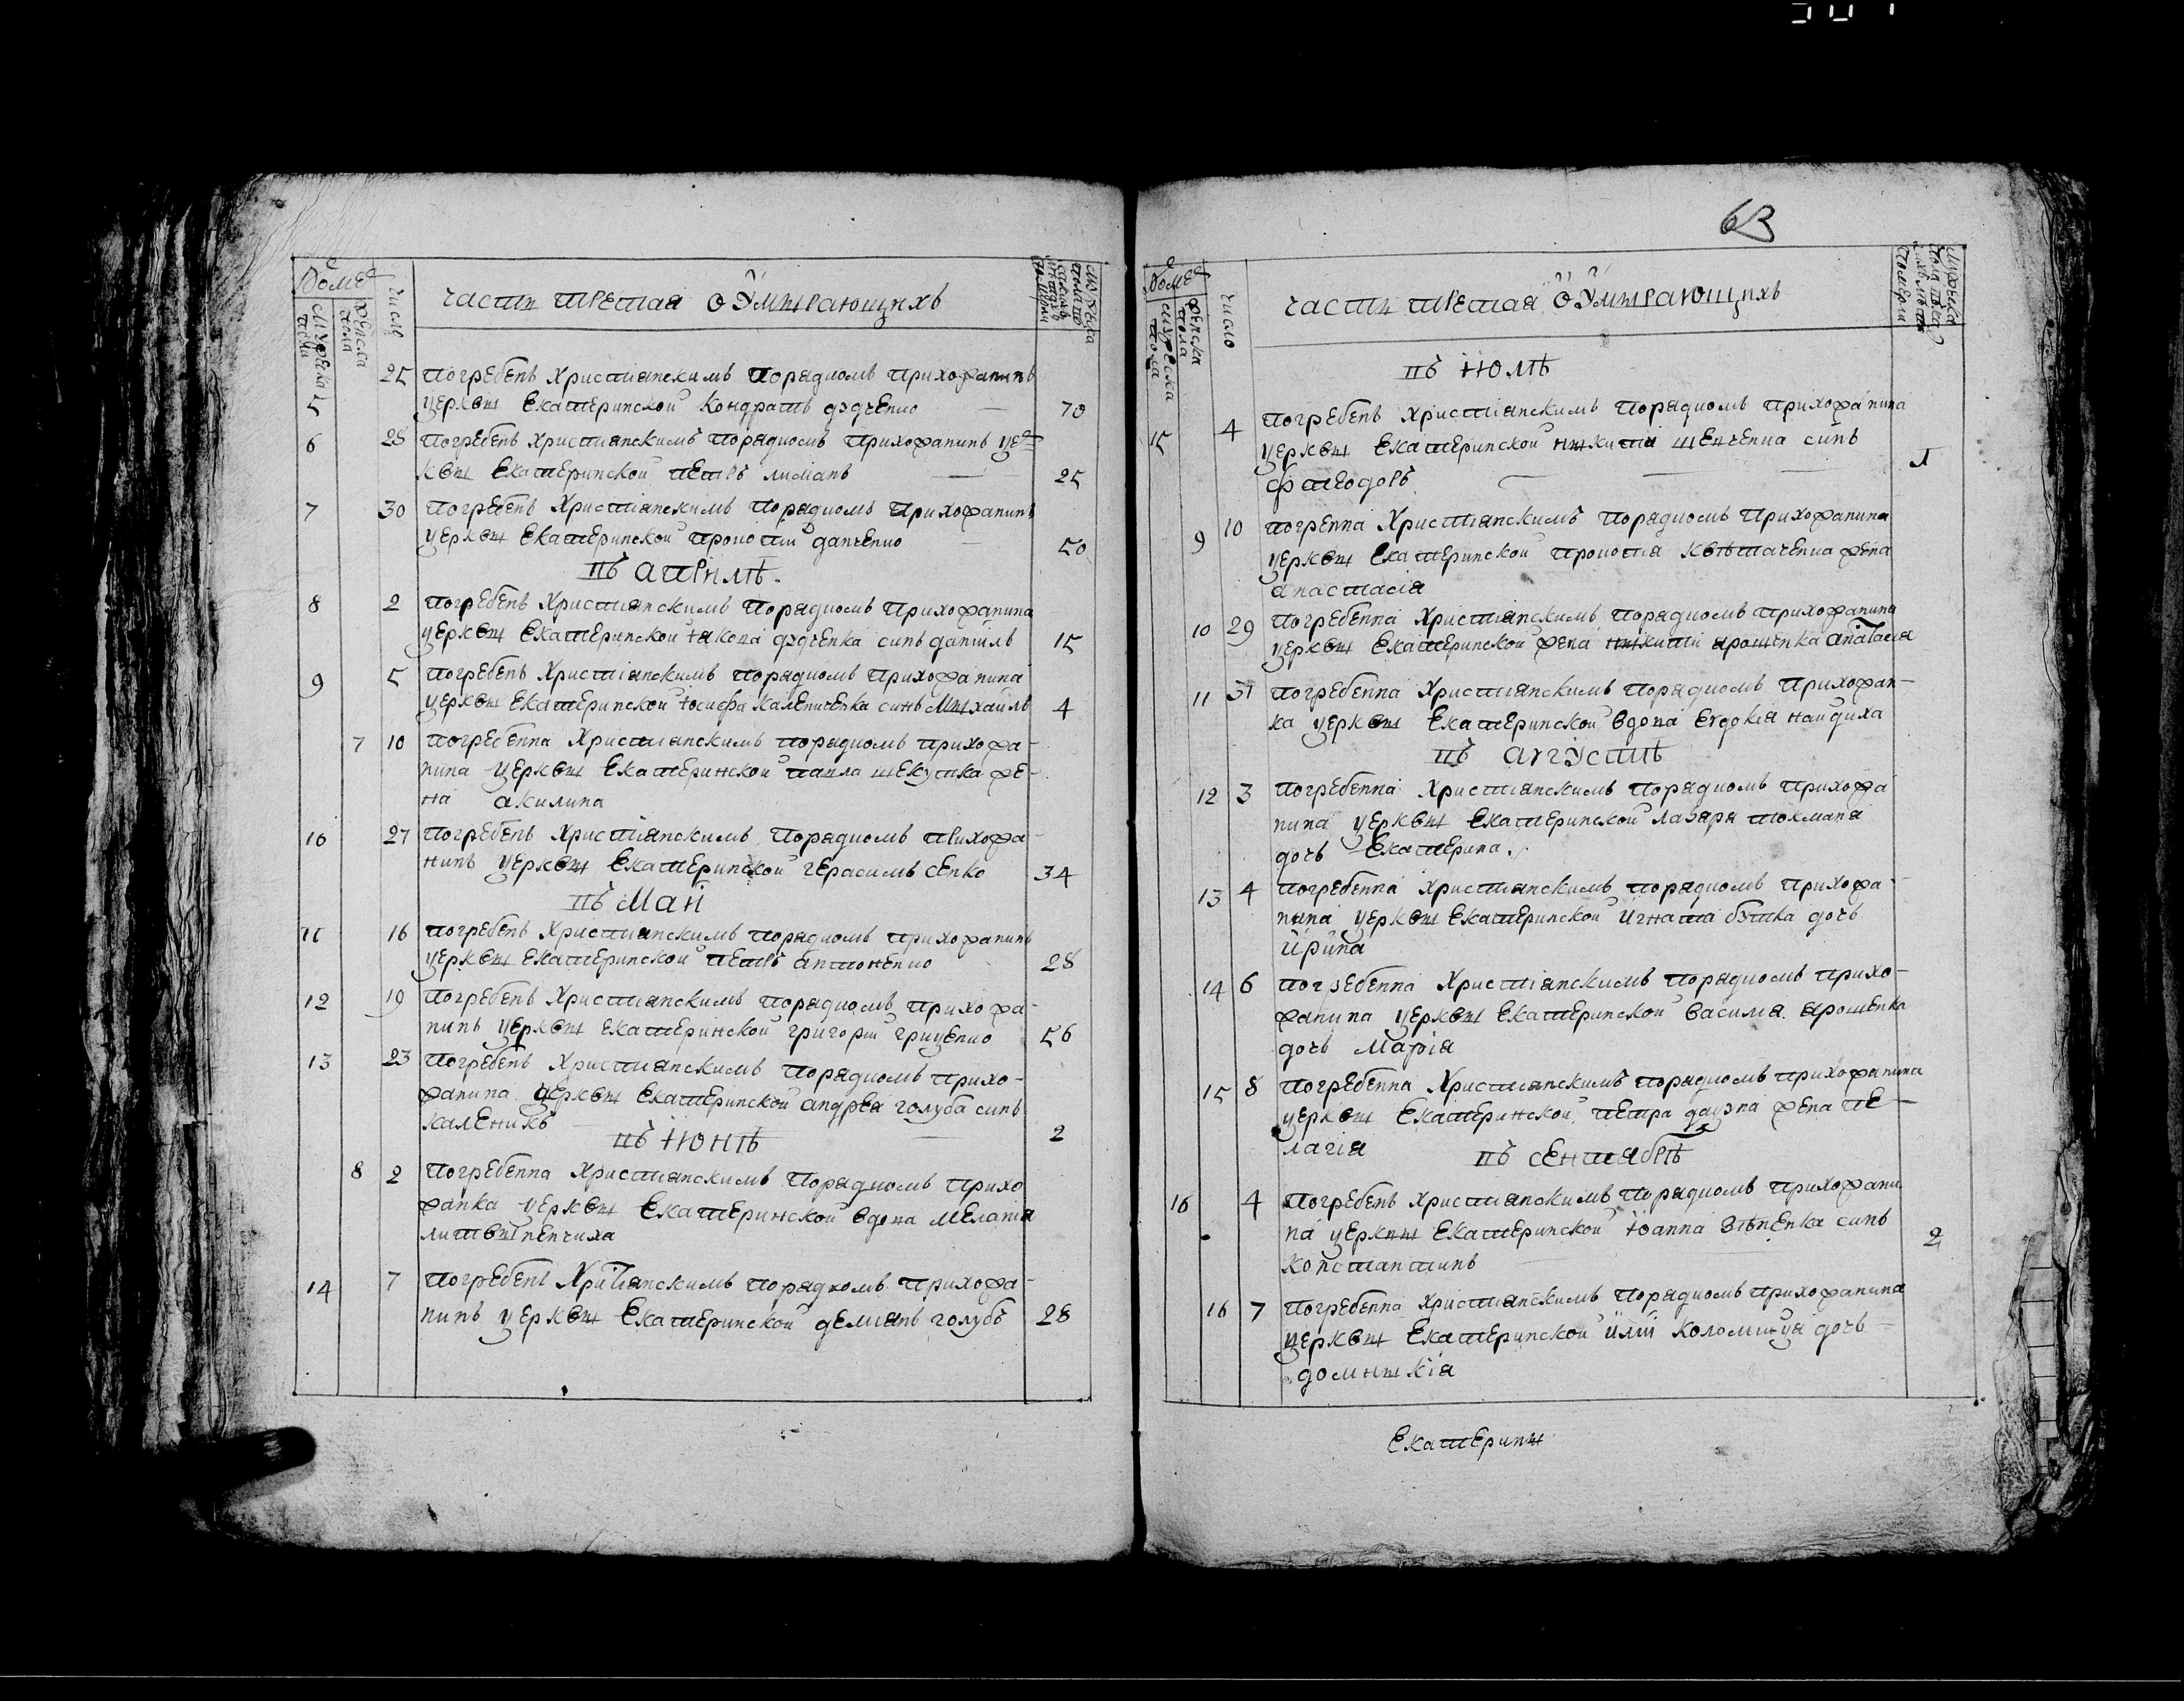 части третая о Умирающихъ
число
25 Погребенъ Христіанскимъ Порядкомъ Прихожанинъ
5 церкви Екатеринской Кондратъ 70
6 28 Погребенъ Христианскимъ Порядкомъ Прихожанинъ цер
кви Екатеринской петръ лиманъ 25
7 30 Погребенъ Христіанскимъ Порядкомъ Прихожанинъ
церкви Екатеринской прокопій данченко 50
въ априлѣ
8 2 Погребенъ Христианскимъ Порядкомъ Прихожанина
церкви Екатеринской Якова синъ даніилъ 15
9 5 Погребенъ Христіанскимъ порядкомъ Прихожанина
церкви Екатеринской Іосифа Калениченка синъ Михаилъ 4
7 10 Погребенна Христианскимъ порядкомъ прихожа-
нина церкви Екатеринской павла шекутка же-
на акилина
10 27 Погребенъ Христіанскимъ Порядкомъ прихожа-
нинъ церкви Екатеринской герасимъ сенко 34
въ Маи
11 16 Погребенъ Христианскимъ порядкомъ прихожанинъ
церкви Екатеринской петръ антоненко 28
12 19 Погребенъ Христианскимъ порядкомъ прихожа-
нинъ церкви Екатеринской григорій гриценко 56
13 23 Погребенъ Христианскимъ порядкомъ прихо-
жанина церкви Екатеринской андрея голуба синъ
каленикъ 2
въ Июнѣ
8 2 Погребенна Христианскимъ Порядкомъ Прихо
жанка церкви Екатеринской вдова Мелания
литвиненчиха
14 7 Погребенъ Христианскимъ порядкомъ Прихожа-
нинъ церкви Екатеринской демянъ голубъ 28
63
число
части третая О Умирающихъ
въ Июлѣ
4 погребенъ Христіанскимъ Порядкомъ прихожанина
15 церкви Екатеринской никити шевченка синъ
феодоръ
9 10 погренна Христианскимъ Порядкомъ Прихожанина
церкви Екатеринской прокопия Квѣтаченка жена
анастасія
10 29 Погребенна Христіанскимъ Порядкомъ прихожанина
церкви Екатеринской жена никити ярошенка анатасия
11 31 Погребенна Христианскимъ порядкомъ Прихожан-
ка церкви Екатеринской вдова Евдокія найдиха
въ августѣ
12 3 Погребенна Христианскимъ порядкомъ прихожа
нина церкви Екатеринской лазаря токмана
дочь Екатерина.
13 4 Погребенна Христианскимъ порядкомъ прихожа-
нина церкви Екатеринской игнати бутка дочь
ирина
14 6 погребенна Христіанскимъ порядкомъ прихо-
жанина церкви Екатеринской василя ярошенка
дочь Марія
15 8 Погребенна Христианскимъ порядкомъ прихожанина
церкви Екатеринской петра жена пе-
лагія
въ сентябрѣ
16 4 Погребенъ Христианскимъ Порядкомъ прихожани
на церкви Екатеринской Іоанна зѣненка синъ
константинъ 2
16 7 Погребенна Христианскимъ порядкомъ прихожанина
церкви Екатеринской иліи коломийця дочь-
домникія
Екатерини